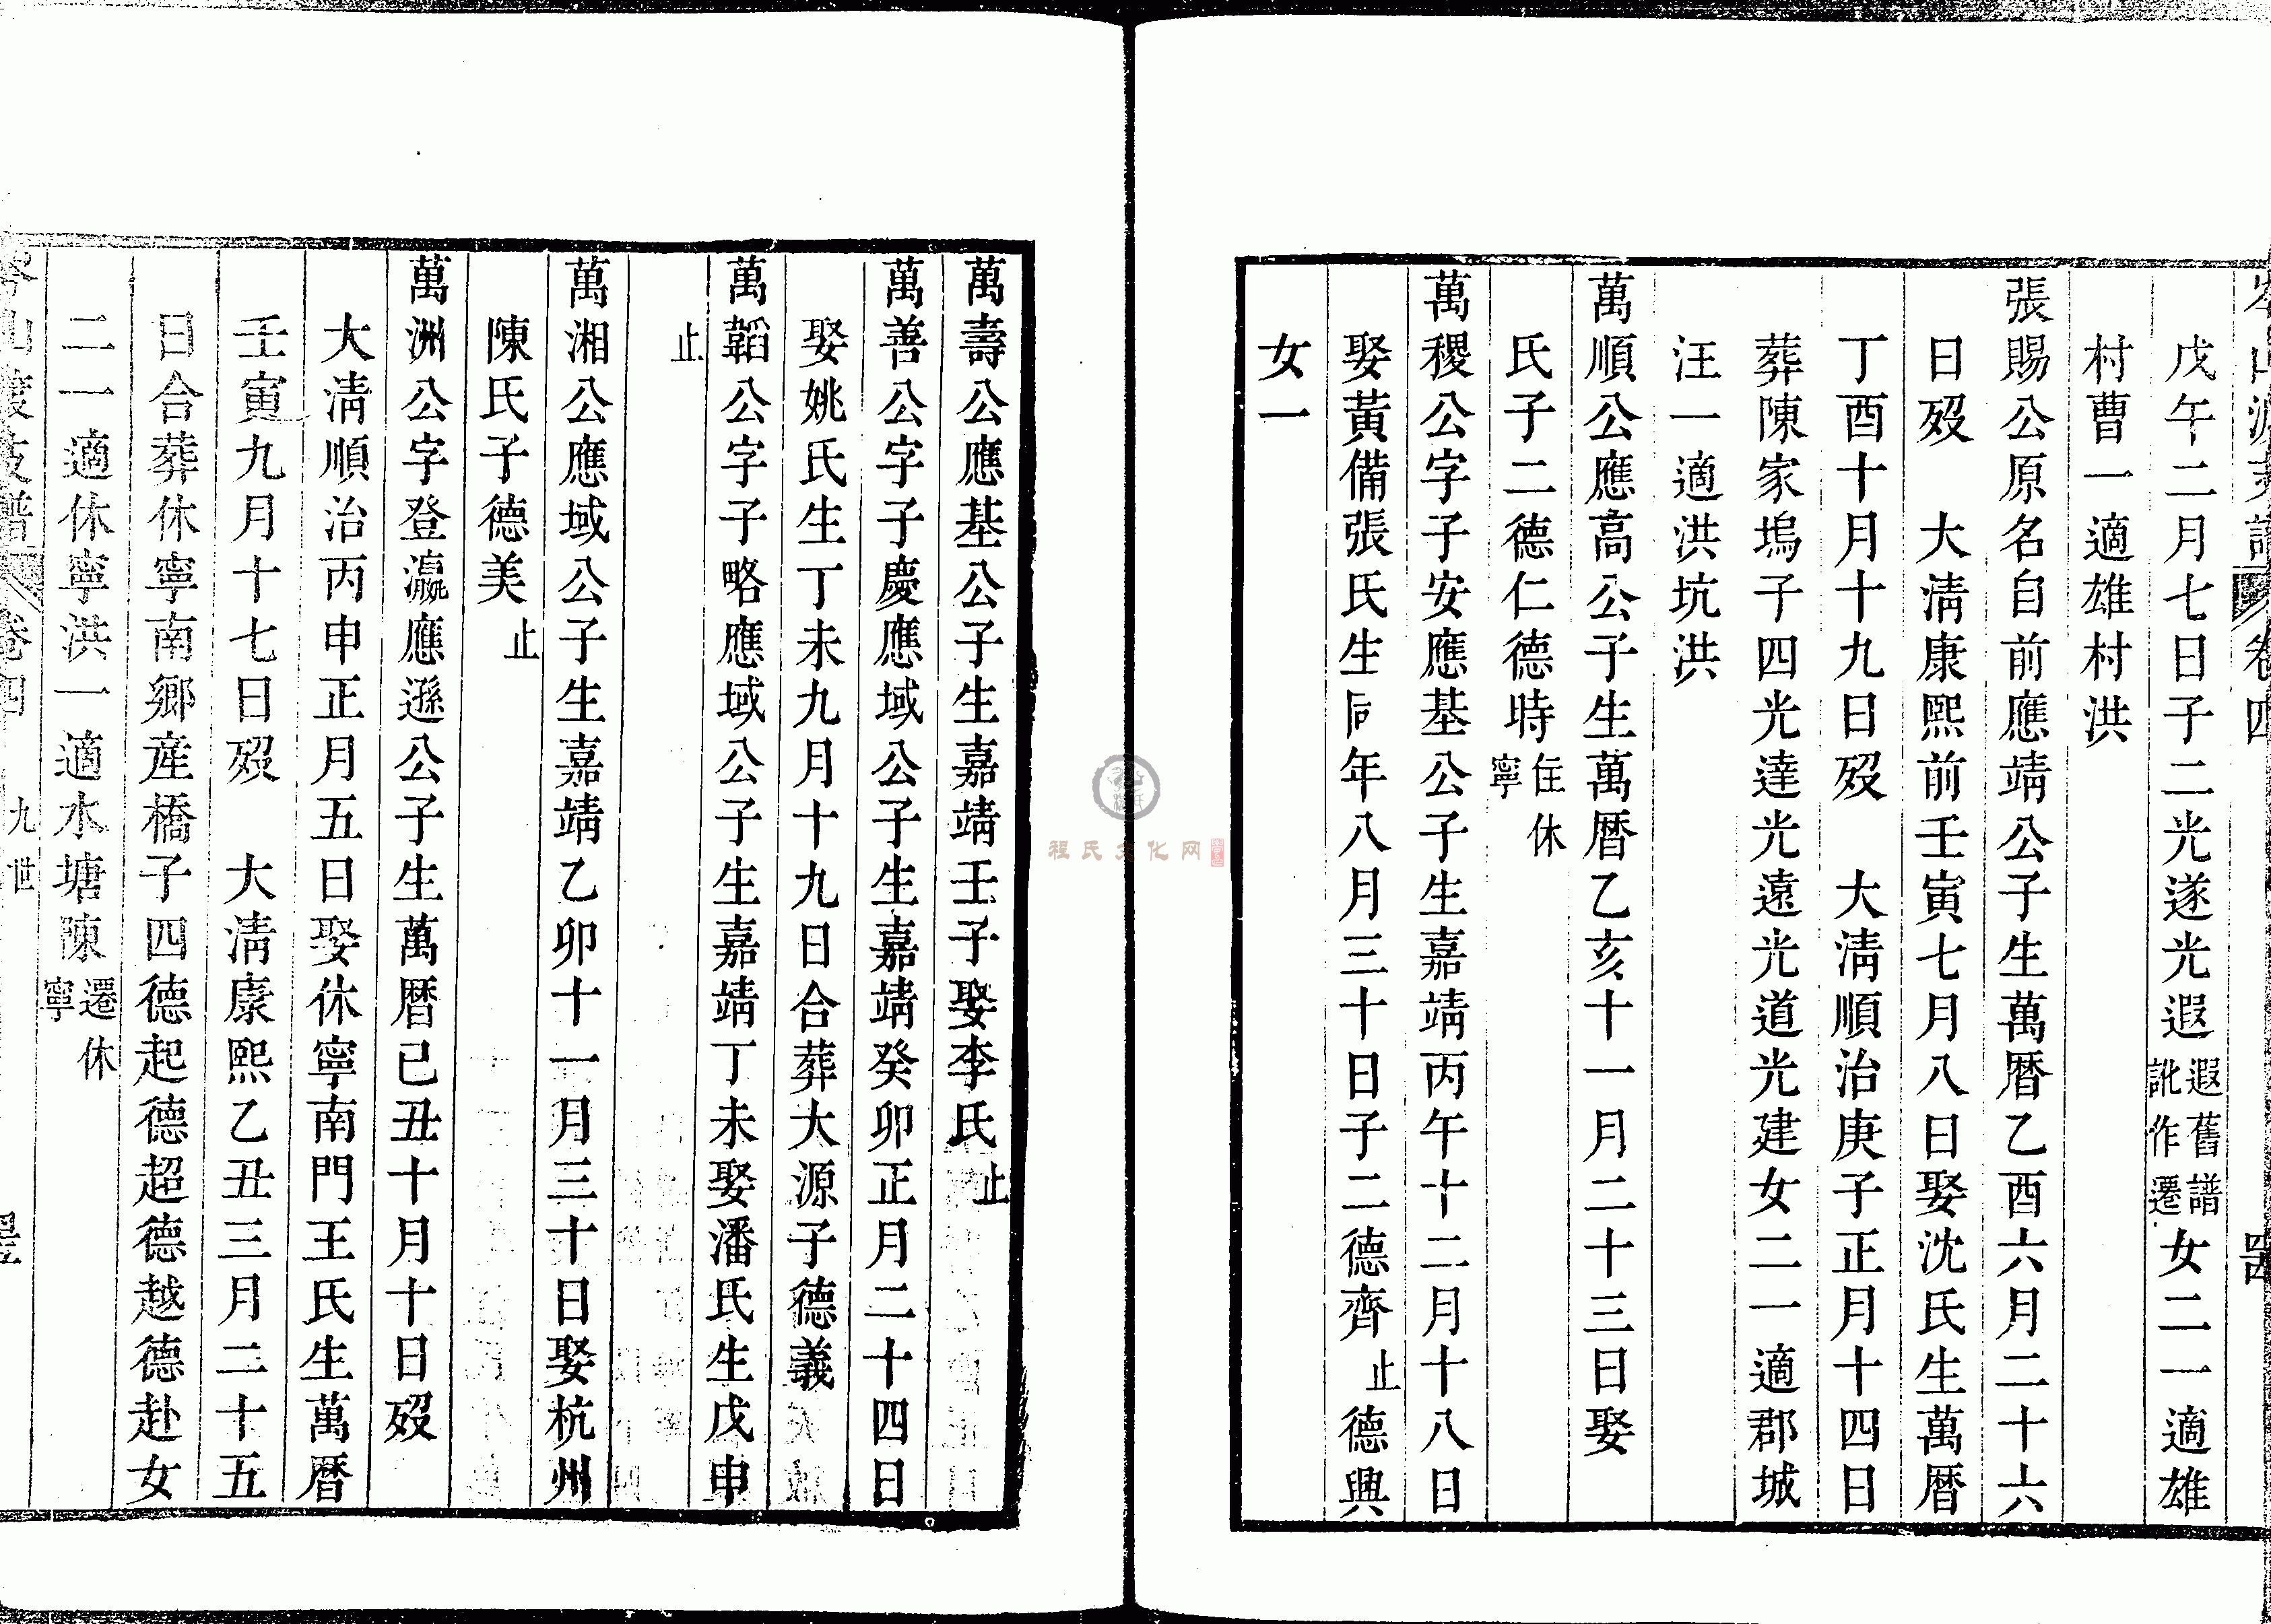 戊午二月七日子二光遂光遐遐舊譜訛作遷女二一適雄
村曹一適雄村洪
張賜公原名自前應靖公子生萬暦乙酉六月二十六
日歿　大淸康熙前壬寅七月八日娶沈氏生萬暦
丁酉十月十九日歿　大淸順治庚子正月十四日
葬陳家塢子四光達光遠光道光建女二一適郡城
汪一適洪坑洪
萬順公應高公子生萬暦乙亥十一月二十三日娶
氏子二德仁德時住休寧
萬稷公字子安應基公子生嘉靖丙午十二月十八日
娶黃備張氏生同年八月三十日子二德齊止德興
女一
萬壽公應基公子生嘉靖壬子娶李氏止
萬善公字子慶應域公子生嘉靖癸卯正月二十四日
娶姚氏生丁未九月十九日合葬大源子德義
萬韜公字子略應域公子生嘉靖丁未娶潘氏生戊申
止
萬湘公應域公子生嘉靖乙卯十一月三十日娶杭州
陳氏子德美止
萬洲公字登瀛應遜公子生萬暦己丑十月十日歿
大淸順治丙申正月五日娶休寧南門王氏生萬暦
壬寅九月十七日歿　大淸康熙乙丑三月二十五
日合葬休寧南鄉產橋子四德起德超德越德赴女
二一適休寧洪一適水塘陳遷休寧
卷四　九世
程氏文化网